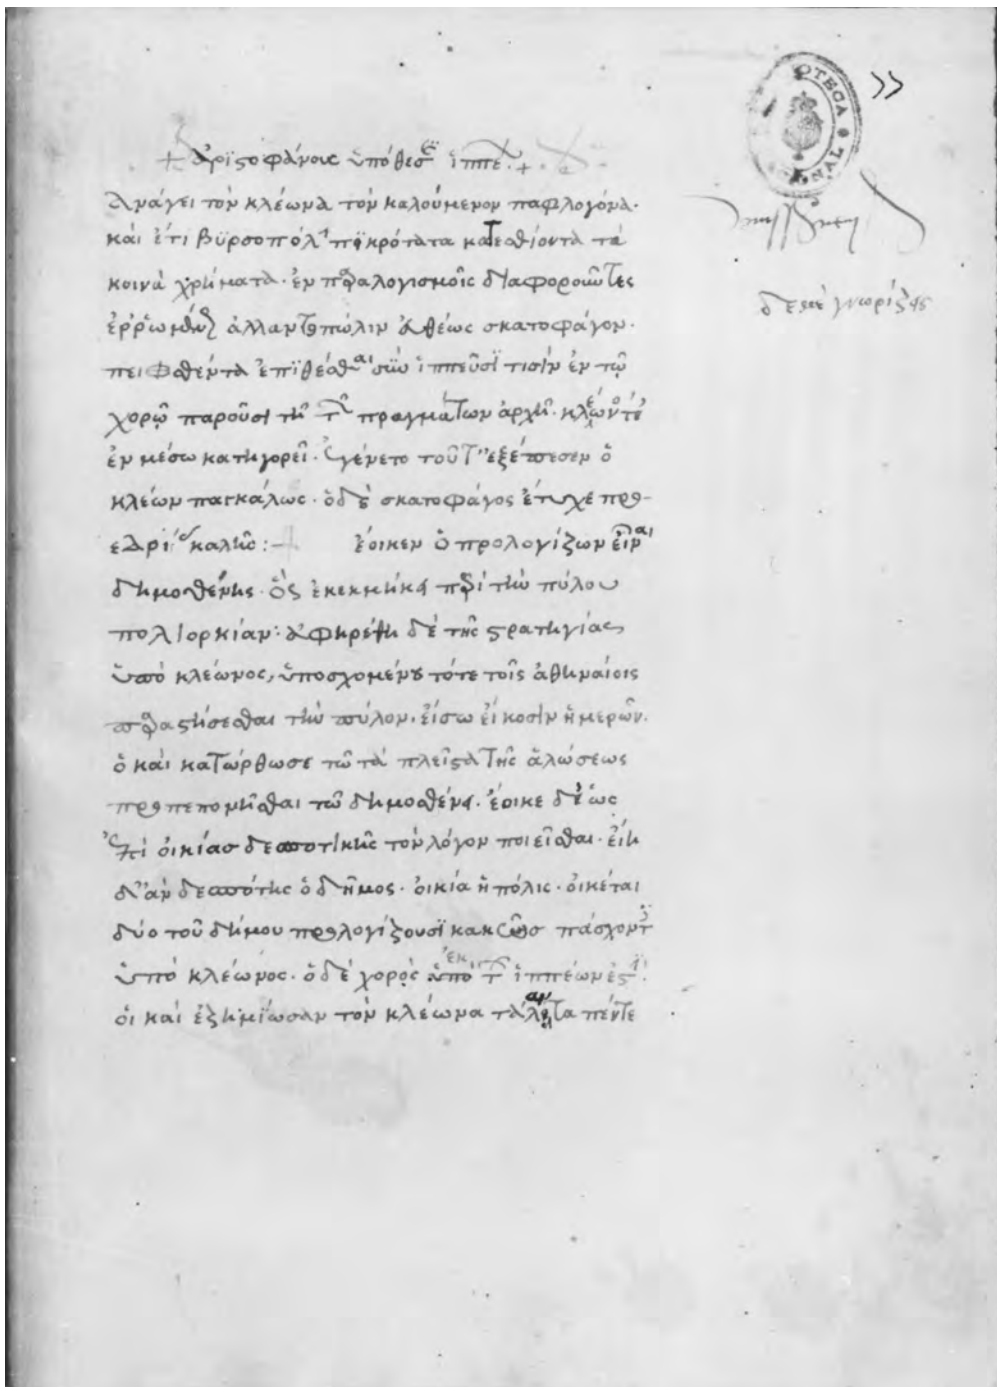 + ἀριστοφάνους ὑπόθεσις ἱππέ +
Ἀνάγει τὸν κλέωνα τὸν καλούμενον παφλογόνα·
καὶ ἔτι βϋρσοπόλ πϊκρότατα κατεσθίοντα τὰ
κοινὰ χρήματα· ἐν παραλογισμοῖς διαφοροῦντες
ἀλλαντοπώλην ἀθέως σκατοφάγον·
πεισθέντα ἐπϊθέσθαι σὺν ἱππεῦσϊ τισὶν ἐν τῷ
χορῷ παροῦσι τῇ τῶν πραγμάτων ἀρχῇ· κλέωνός τὲ
ἐν μέσω κατηγορεῖ· ἐγένετο τοῦτ ἐξέπεσεν ὁ
κλέων παγκάλως· ὁ δὲ σκατοφάγος ἔτυχε προ-
εδρίας καλῆς:– ἔοικεν ὁ προλογίζων εἶναι
δημοσθένης· ὃς ἐκεκμήκει περὶ τὴν πύλου
πολιορκίαν: ἀφῃρέθη δὲ τῆς στρατηγίας
ὑπὸ κλέωνος, ὑποσχομένου τότε τοῖς ἀθηναίοις
παραστήσεσθαι τὴν πύλον· εἴσω εἴκοσιν ἡμερῶν·
ὃ καὶ κατώρθωσε τῶ τὰ πλεῖστα τῆς ἁλώσεως
προπεπονῆσθαι τῶ δημοσθένει· ἔοικε δὲ ὡς
ἐπὶ οἰκίασ δεσποτικῆς τὸν λόγον ποιεῖσθαι· εἴη
δ' ἂν δεσπότης ὁ δῆμος· οἰκία ἡ πόλις· οἰκέται
δύο τοῦ δήμου προλογίζουσϊ κακῶσ πάσχοντες
ὑπὸ κλέωνος· ὁ δὲ χορὸς ἐκ τῶν ἱππέων ἐστϊ·
οἳ καὶ ἐζημίωσαν τὸν κλέωνα τάλαντα πέντε